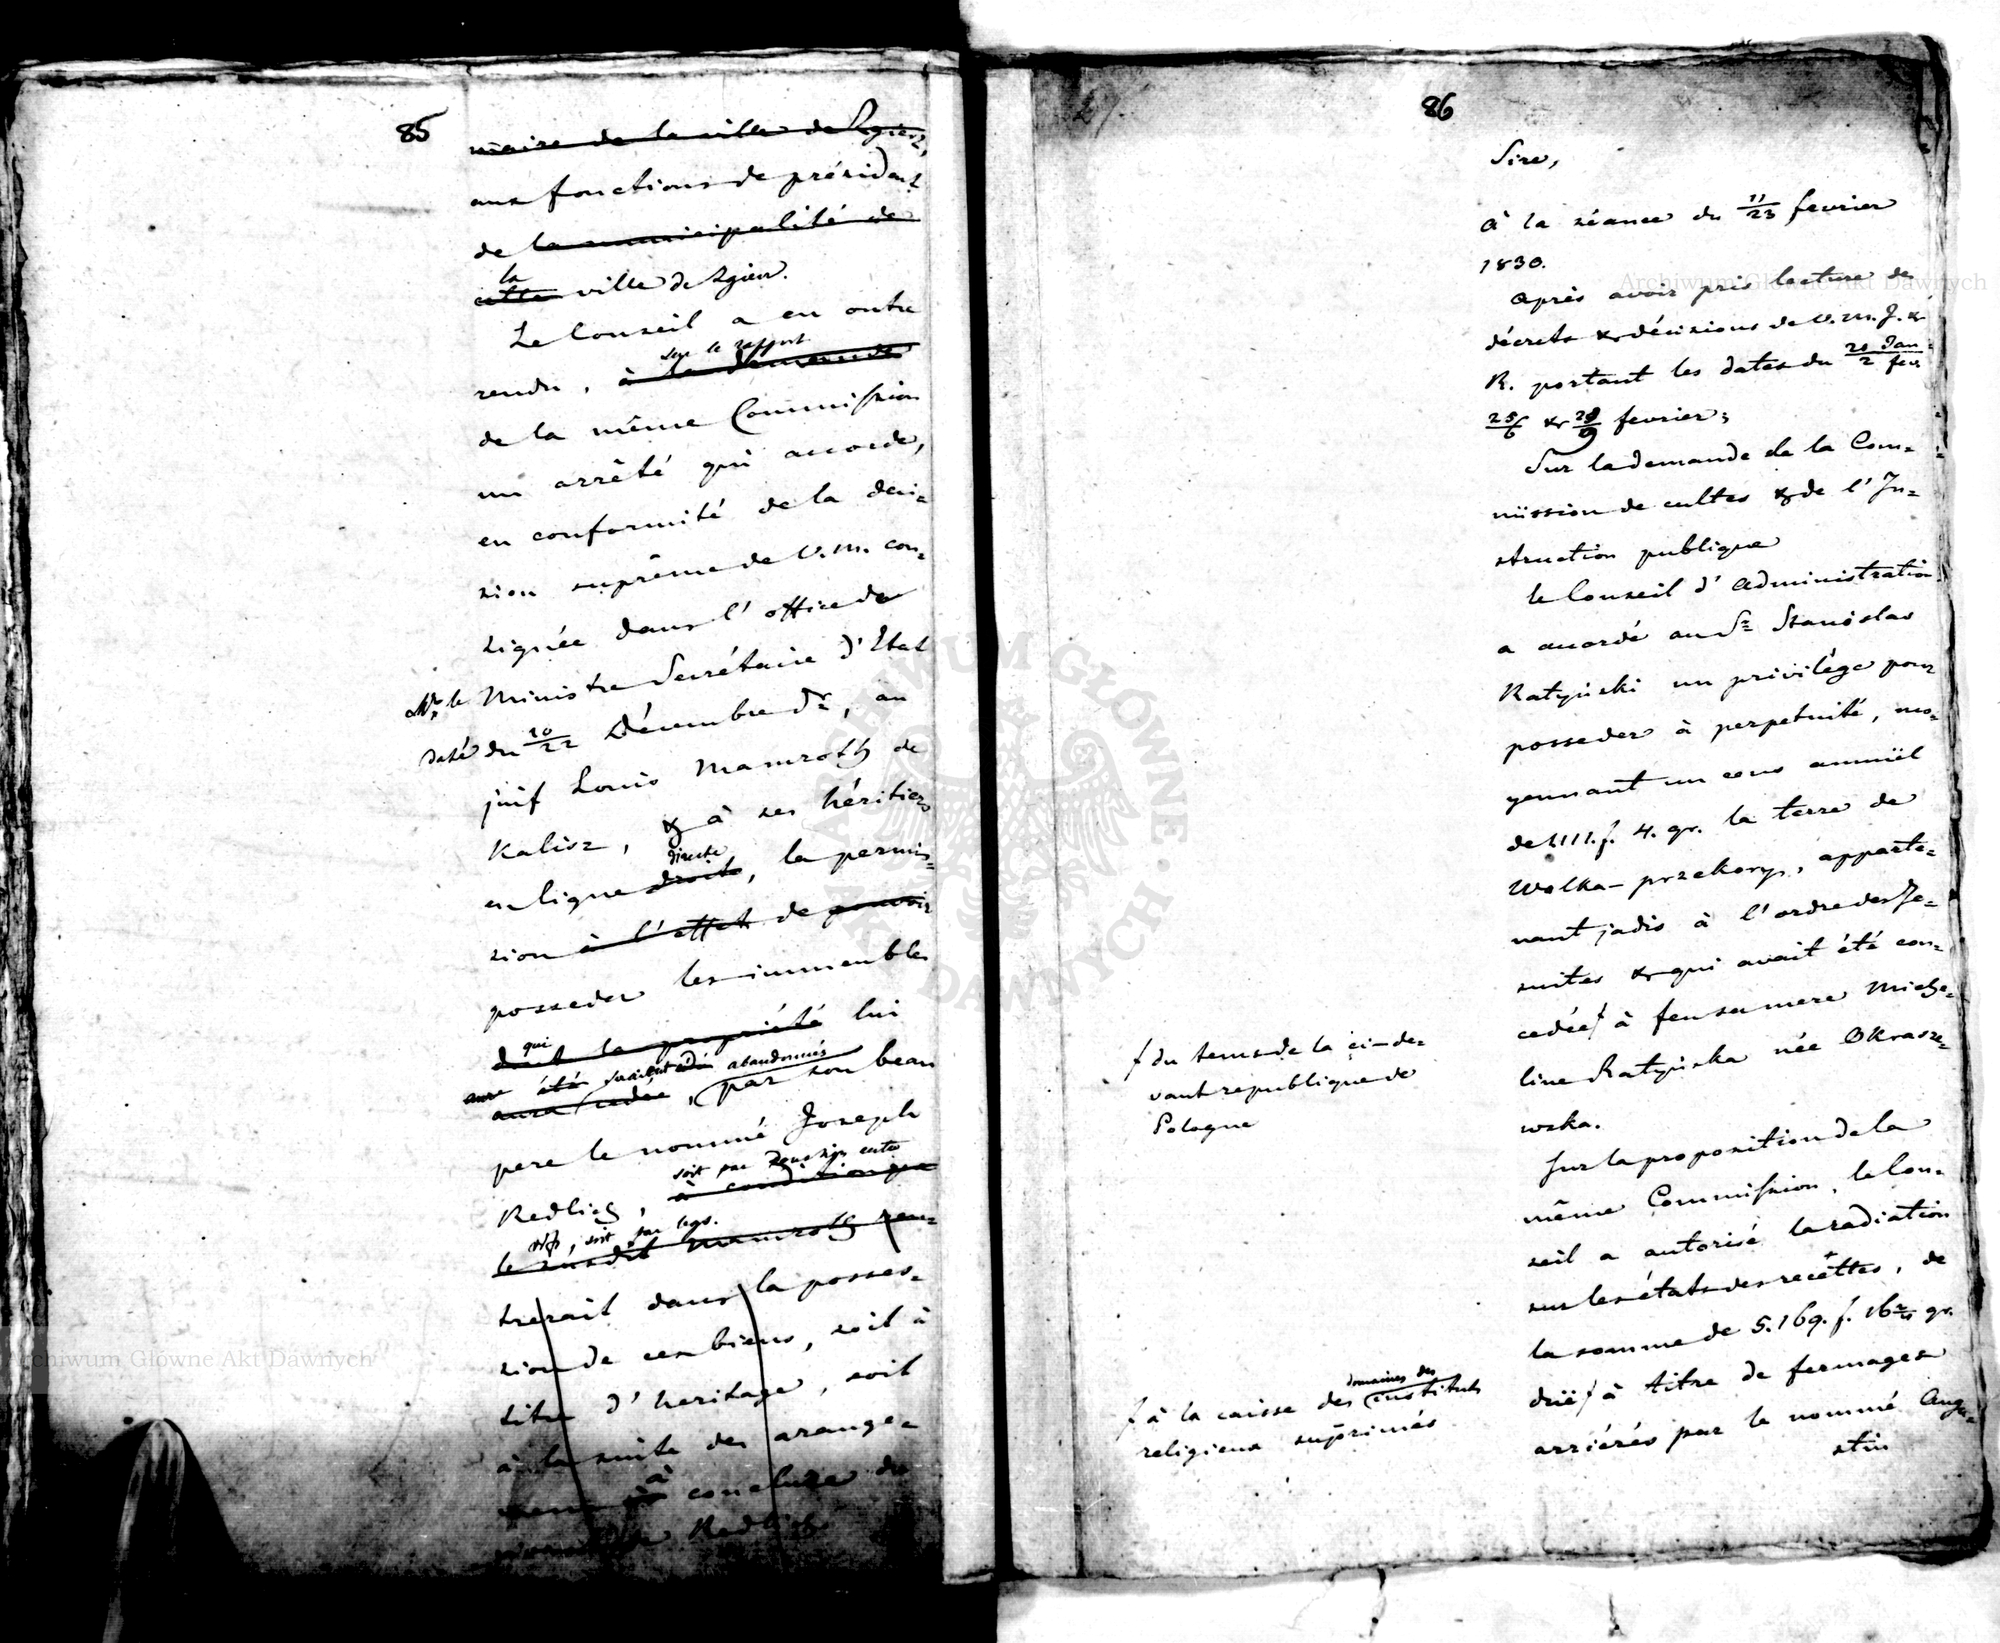 85
maire de la ville de Zgierz,
aux fonctions de président
de la municipalité de
la
cette ville de Zgierz.
Le Conseil a en outre
sur le rapport
rendu, à la demande
de la même Commission
un arrêté qui accorde,
en conformité de la deci=
sion suprême de V. M. con=
signée dans l'office de
Mr. le Ministre Secrétaire d'Etat
daté du 10/22 Décembre dr, au
juif Louis Mamroth de
Kalisz, & à ses héritiers
directe
en ligne droite, la permis=
sion à l'effet de pouvoir
posseder les immeubles
qui
dont la propriété lui
aura cedée, par son beau
abandonnés
pere le nommé Joseph
Redlich, à condition que
soit par
soit par legs.
le susdit Mamroth ren=
trerait dans la posses=
sion de ces biens, soit à
titre d'heritage, soit
à la suite des arange=
à
mens à conclure du
Redlich
86
Sire,
à la séance du 11/23 fevrier
1830.
Après avoir pris lecture des
décrets & décisions de V. M. J. &
R. portant les dates du 21 Jan/2 fevr
25/6 & 28/9 fevrier;
Sur la demande de la Com=
mission de cultes & de l'In=
struction publique
le Conseil d'Administration
a accordé au Sr Stanislas
Ratyński un privilège pour
posseder à perpetuité, mo=
yennant un cens annuel
de 1111. f. 4. gr. la terre de
Wolka-przekory, apparte=
nant jadis à l'ordre des Je=
suites & qui avait été con=
cedée à feu sa mere Miche=
line Ratyńska née Okrasze=
wska.
f du tems de la ci-de=
vant republique de
Pologne
Sur la proposition de la
même Commission, le Con=
seil a autorisé la radiation
sur les états des recêttes, de
la somme de 5.169. f. 16 gr.
dûe à titre de fermages
arriérés par le nommé Augu=
stin
domaines des
f à la caisse des instituts
religieux suprimés